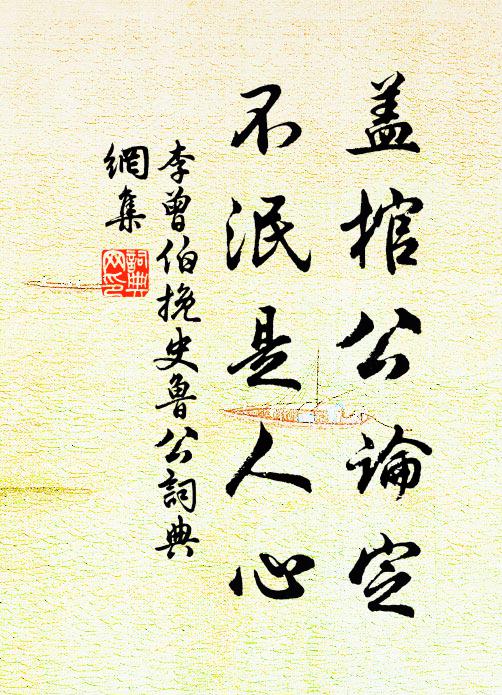 盖棺公論定
不泯是人心
李曾伯挽史魯公詞典
網集
詞典
网印